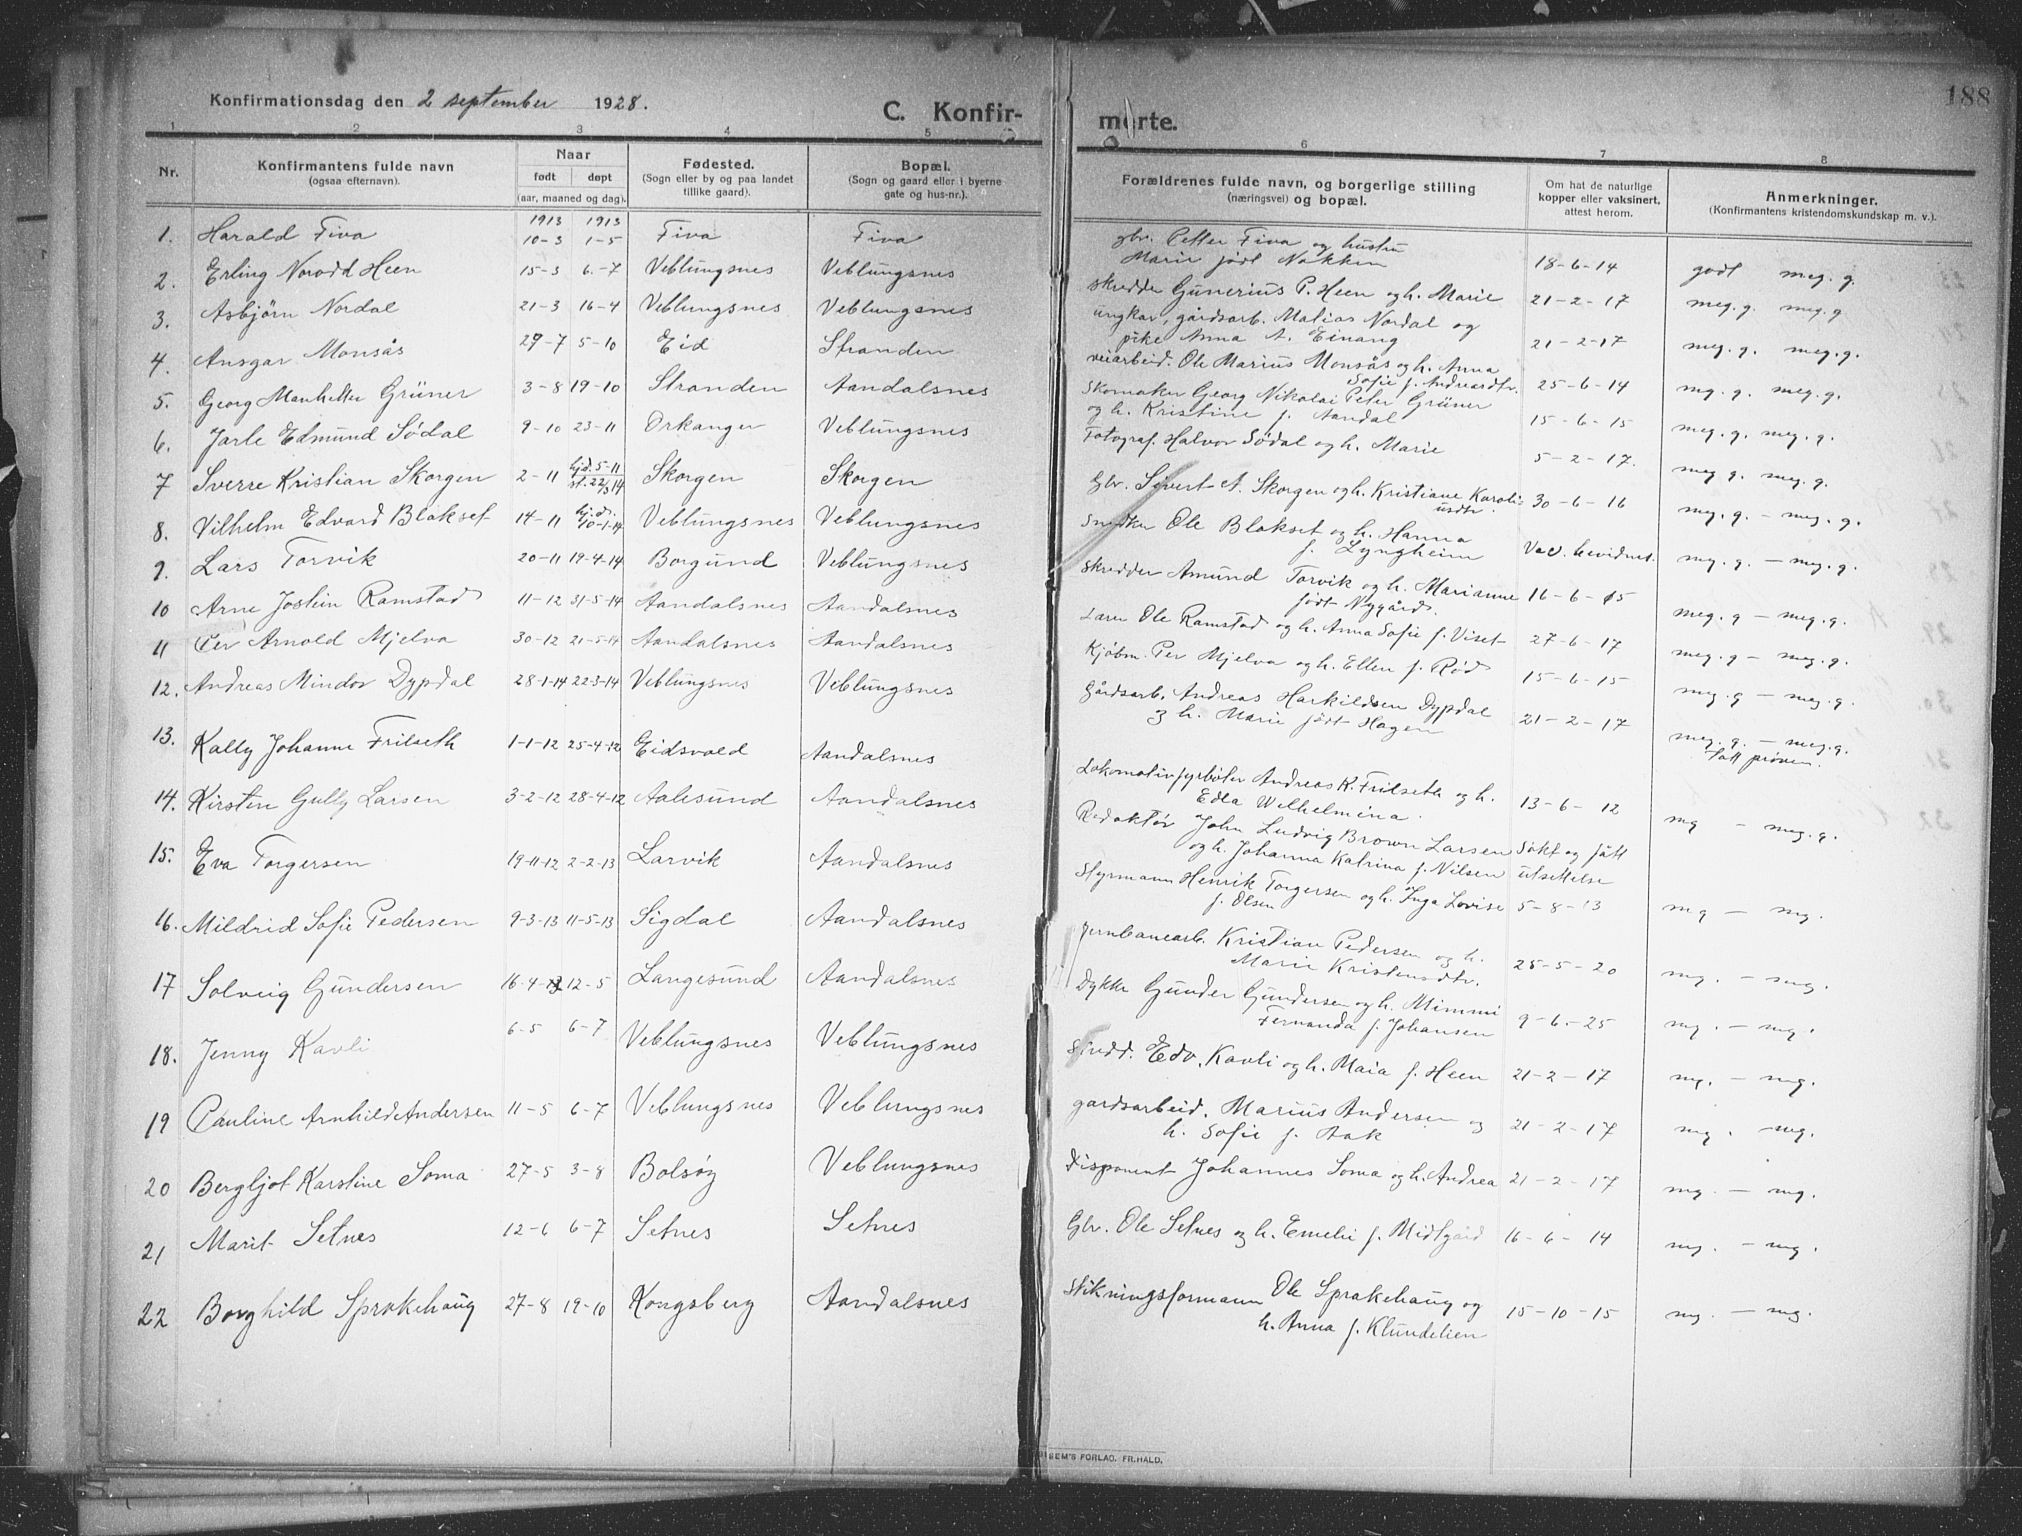 188
Konfirmationsdag den 2 september 1928.
C. Konfirmerte.
1 2 3 4 5 6 7 8
Nr. | Konfirmantens fulde navn (ogsaa efternavn). | Naar født døpt (aar, maaned og dag). | Fødested. (Sogn eller by og paa landet tillike gaard). | Bopæl. (Sogn og gaard eller i byerne gate og hus-nr.). | Forældrenes fulde navn, og borgerlige stilling (næringsvei) og bopæl. | Om hat de naturlige kopper eller vaksinert, attest herom. | Anmerkninger. (Konfirmantens kristendomskundskap m. v.).
1. Harald Fiva | 1913 10-3 | 1913 1-5 | Fiva | Fiva | gbr. Petter Fiva og hustru Marie født Nokken | 18-6-14 | godt meg. g.
2. Erling Norodd Heen | 15-3 | 6-7 | Veblungsnes | Veblungsnes | skredder Gunerius P. Heen og h. Marie | 21-2-17 | meg. g. meg. g
3. Asbjörn Nordal | 21-3 | 16-4 | Veblungsnes | Veblungsnes | ungkar, gårdsarb. Matias Nordal og pike Anna A. Einang | 21-2-17 | meg. g. meg. g.
4. Ansgar Monsås | 29-7 | 5-10 | Eid | Stranden | veiarbeid. Ole Marius Monsås og h. Anna Sofie f. Andreasdtr. | 25-6-14 | mg. g. meg. g.
5. Georg Grüner | 3-8 | 19-10 | Stranden | Aandalsnes | Skomaker Georg Nikolai Peter Grüner og h. Kristine f. Aandal | 15-6-15 | meg. g. meg. g.
6. Jarle Edmund Södal | 9-10 | 23-11 | Orkanger | Veblungsnes | Fotograf. Halvor Södal og h. Marie | 5-2-17. | meg g. meg. g.
7 Sverre Kristian Skorgen | 2-11 | hjd. 5-11 st. 22/3 14 | Skorgen | Skorgen | Gbr. Sivert A. Skorgen og h. Kristiane Karoliusdtr. | 30-6-16 | meg. g. - meg. g.
8. Vilhelm Edvard Blokset | 14-11 | hj. d. 10-1-14 | Veblungsnes | Veblungsnes | Snedker Ole Blokset og h. Hanna f. Lyngheim | Vac. bevidnet. | meg. g. - meg. g.
9. Lars Torvik | 20-11 | 19-4-14 | Borgund | Veblungsnes | skredder Amund Torvik og h. Marianne født Nygårds. | 16-6-15 | meg. g - meg. g.
10 Arne Jostein Ramstad | 11-12 | 31-5-14 | Aandalsnes | Aandalsnes | Lærer Ole Ramstad og h. Anna Sofie f. Viset | 27-6-17 | meg. g - meg. g.
11 Per Arnold Mjelva | 30-12 | 21-5-14 | Aandalsnes | Aandalsnes | Kjøbm. Per Mjelva og h. Ellen f. Rød | 15-6-15 | meg. g - meg. g.
12. Andreas Mindor Dypdal | 28-1-14 | 22-3-14 | Veblungsnes | Veblungsnes | gårdsarb. Andreas Harkildsen Dypdal og h. Marie født Hagen | 21-2-17 | meg. g. - meg. g.
13. Kally Johanne Frilseth | 1-1-12 | 25-4-12 | Eidsvold | Aandalsnes | Lokomotivfyrbøter Andreas K. Frilseth og h. Edla Wilhelmina. | 13-6-12 | tatt prøven. mg - meg. g.
14. Kirsten Gully Larsen | 3-2-12 | 28-4-12 | Aalesund | Aandalsnes | Redaktør John Ludvig Brown Larsen og h. Johanna Katrina f. Nilsen | Søkt og fått utsettelse
15. Eva Torgersen | 19-11-12 | 2-2-13 | Larvik | Aandalsnes | Styrmann Henrik Torgersen og h. Inga Lovise f. Olsen | 5-8-13 | mg - mg.
16. Mildrid Sofie Pedersen | 9-3-13 | 11-5-13 | Sigdal | Aandalsnes | Jernbanearb. Kristian Pedersen og h. Marie Kristensdtr. | 25-5-20 | mg. - mg.
17 Solveig Gundersen | 16-4-13 | 12-5 | Langesund | Aandalsnes | Dykker Gunder Gundersen og h. Mimmi Fernanda f. Johansen | 9-6-25 | mg. - mg.
18. Jenny Kavli | 6-5 | 6-7 | Veblungsnes | Veblungsnes | Edv. Kavli og h. Maia f. Heen | 21-2-17 | mg. - mg.
19 Pauline Arnhild Andersen | 11-5 | 6-7 | Veblungsnes | Veblungsnes | gardsarbeid. Marius Andersen og h. Sofie f. Aak | 21-2-17 | mg. mg.
20 Bergljot Karstine Soma | 27-5 | 3-8 | Bolsøy | Veblungsnes | Disponent Johannes Soma og h. Andrea | 21-2-17 | mg. - mg.
21 Marit Setnes | 12-6 | 6-7 | Setnes | Setnes | Gbr. Ole Setnes og h. Emelie f. Midtgård | 16-6-14 | mg. - mg.
22 Borghild Sprakehaug | 27-8 | 19-10 | Kongsberg | Aandalsnes | Stikningsformann Ole Sprakehaug og h. Anna f. Klundelien | 15-10-15 | mg. - mg.
SEM'S FORLAG. FR. HALD.